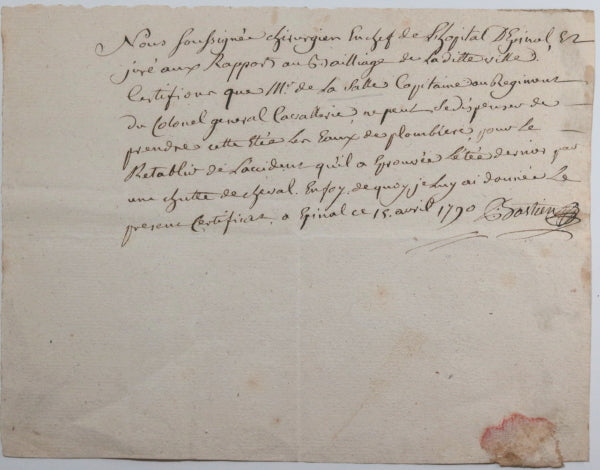 Nous soussignée chirurgien En chef de L'hopital D'Epinal Et
juré aux Rapports au Bailliage de Laditte ville,
Certifions que Mr. de La Salle Capitaine au Regiment
du Colonel general Cavallerie ne peut se dispenser de
prendre cette Etée les Eaux de plombiere pour le
Retablir de L'accident qu'il a Eprouvée L'étée dernier par
une chutte de cheval. En foy de quoy je Luy ai donnée Le
present Certificat, a Epinal ce 15. avril 1790